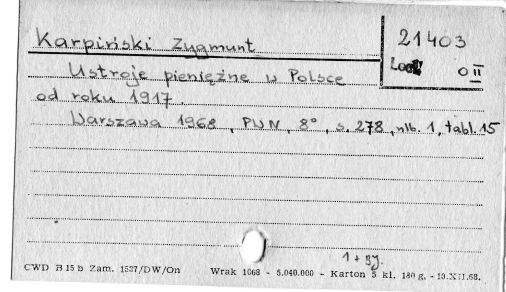 Karpiński Zygmunt
21403
0 II
Ustroje pieniężne w Polsce
od roku 1917.
Warszawa 1968, PWN, 8°, s. 278, nlb. 1, tabl. 15
1 + egz.
CWD B 15 b Zam. 1537/DW/On Wrak 1068 - 5.040.000 - Karton 5 kl. 180 g. - 10.XII.68.